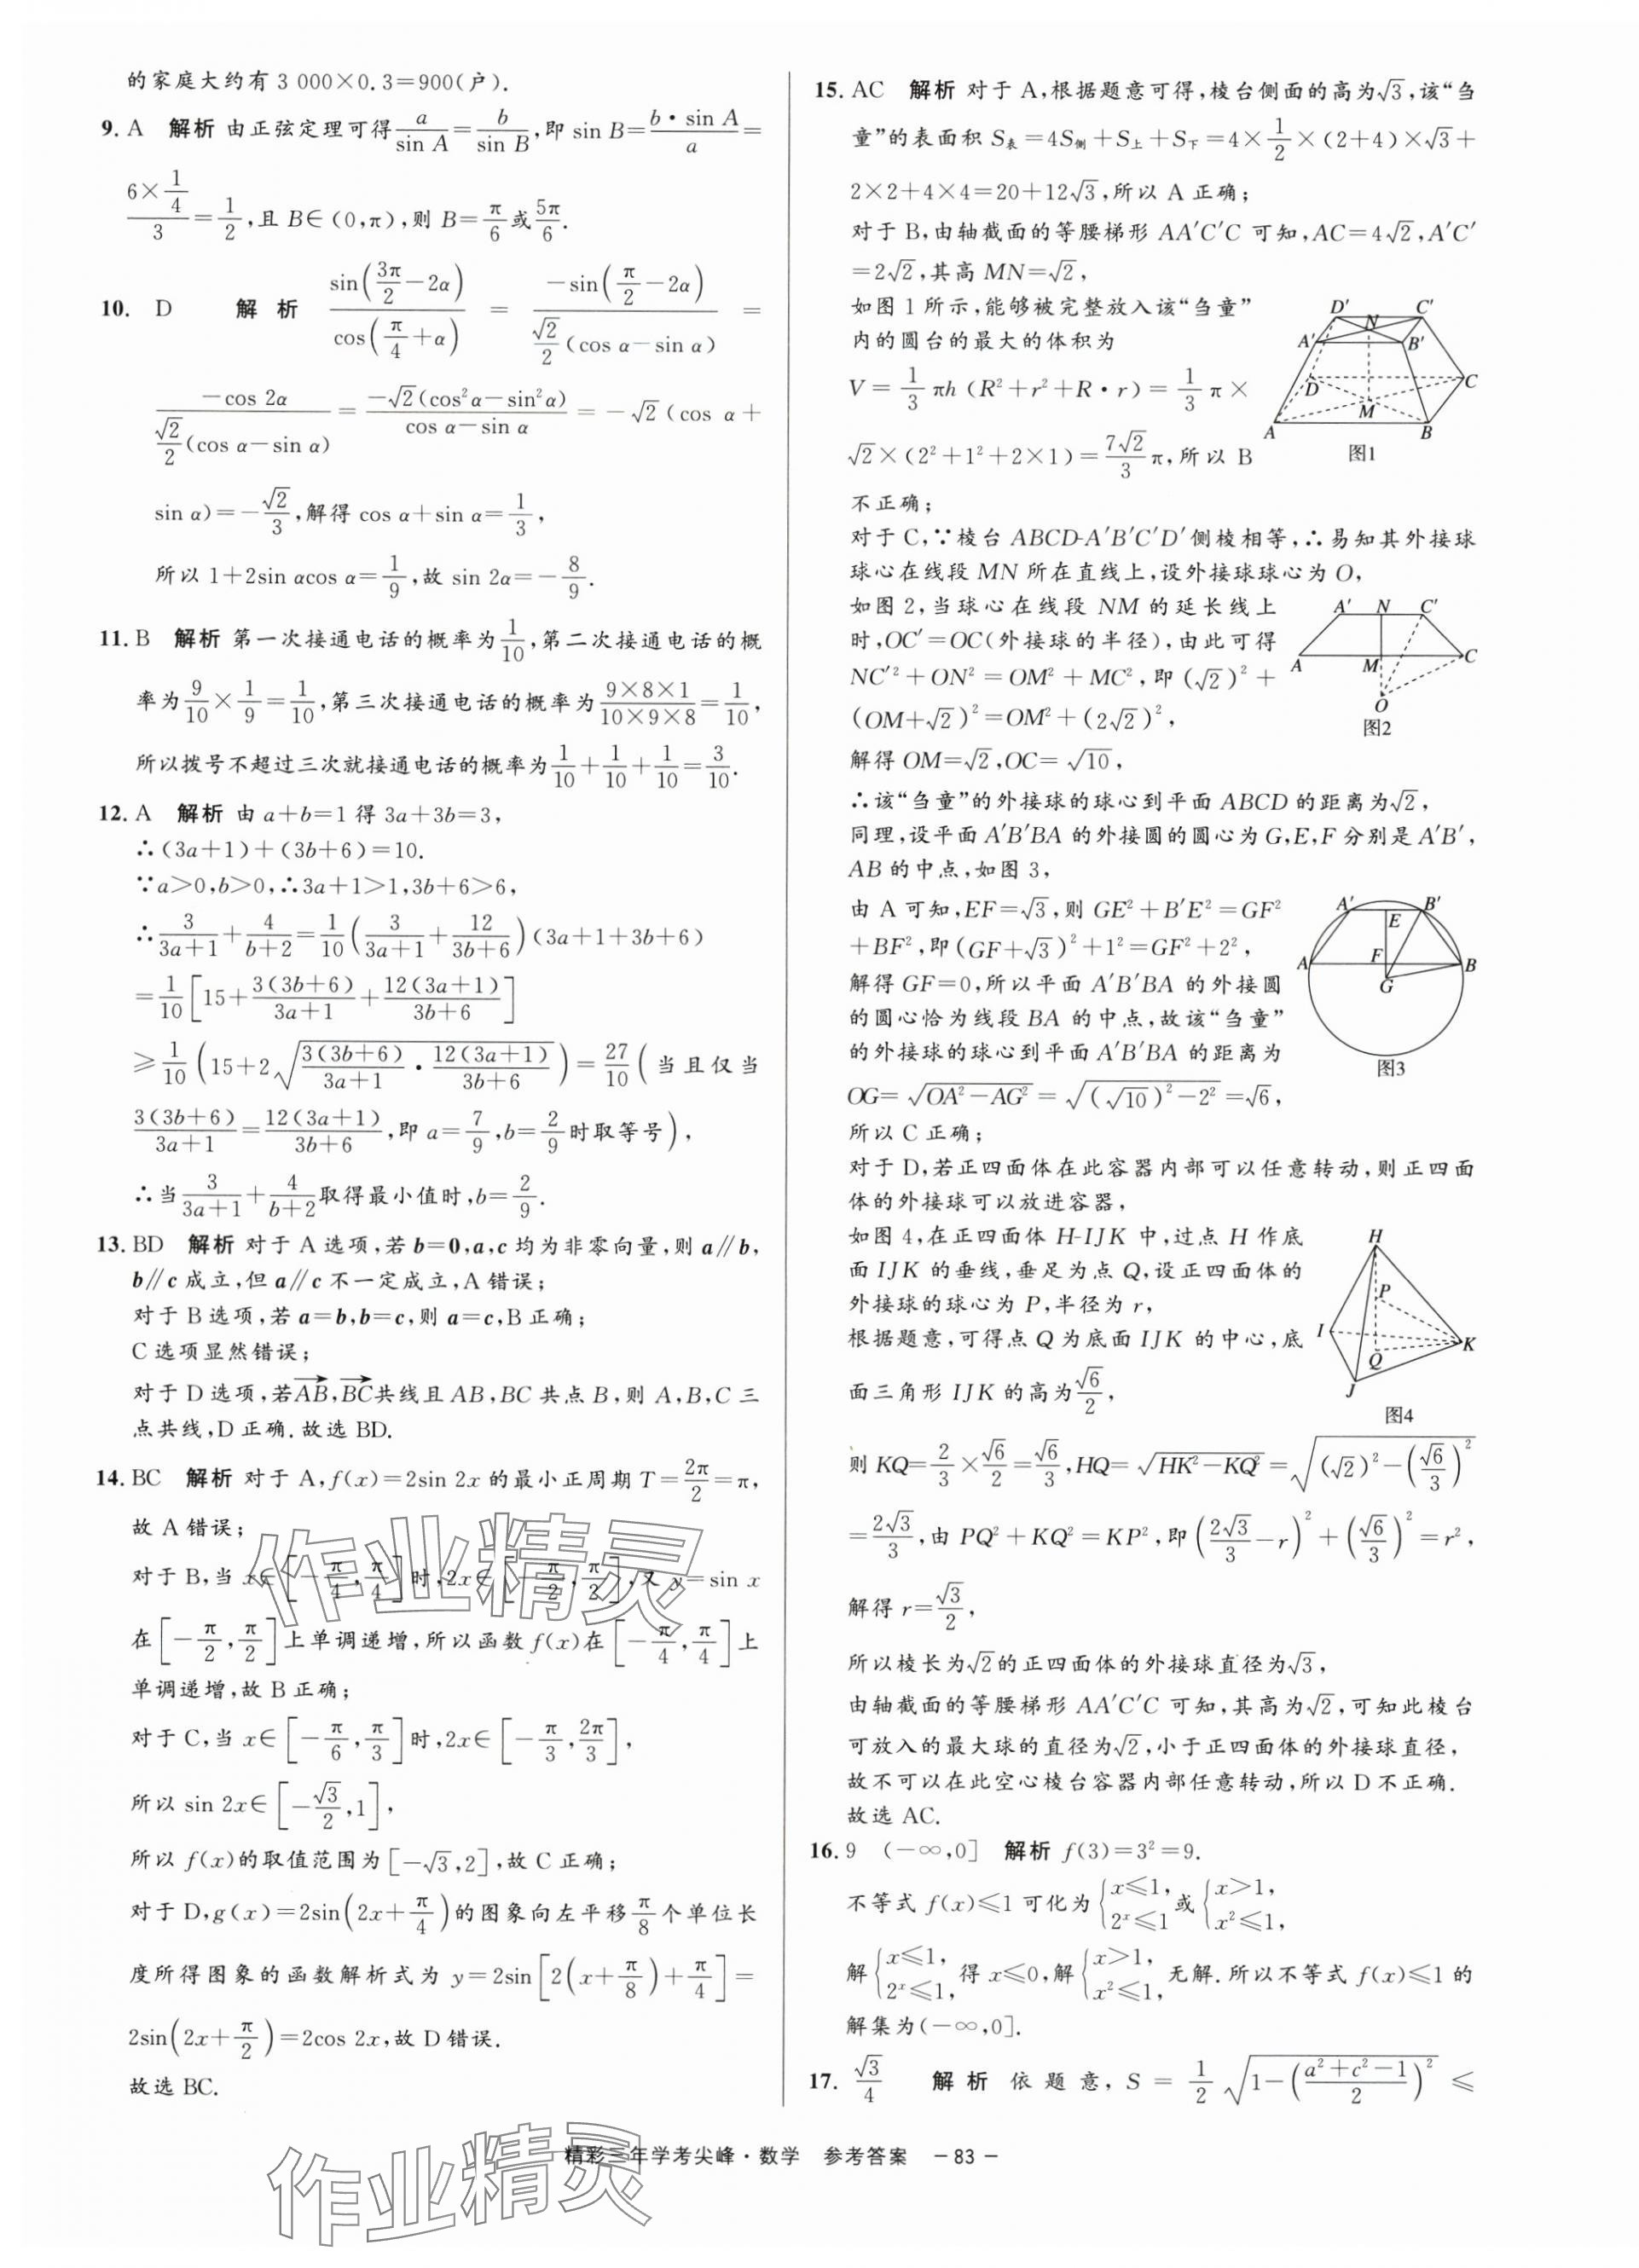 的家庭大约有 3 000×0.3=900(户).
9. A 解析 由正弦定理可得 a/sin A = b/sin B, 即 sin B = (b·sin A)/a =
(6×1/4)/3 = 1/2, 且 B∈(0,π), 则 B = π/6 或 5π/6.
10. D 解析 sin(3π/2−2α)/cos(π/4+α) = −sin(π/2−2α)/(√2/2(cos α−sin α)) =
−cos 2α/(√2/2(cos α−sin α)) = −√2(cos²α−sin²α)/(cos α−sin α) = −√2(cos α+
sin α)=−√2/3, 解得 cos α+sin α=1/3,
所以 1+2sin αcos α=1/9, 故 sin 2α=−8/9.
11. B 解析 第一次接通电话的概率为 1/10, 第二次接通电话的概
率为 9/10×1/9=1/10, 第三次接通电话的概率为 (9×8×1)/(10×9×8)=1/10,
所以拨号不超过三次就接通电话的概率为 1/10+1/10+1/10=3/10.
12. A 解析 由 a+b=1 得 3a+3b=3,
∴(3a+1)+(3b+6)=10.
∵a>0,b>0,∴3a+1>1,3b+6>6,
∴3/(3a+1)+4/(b+2)=1/10(3/(3a+1)+12/(3b+6))(3a+1+3b+6)
=1/10[15+3(3b+6)/(3a+1)+12(3a+1)/(3b+6)]
≥1/10(15+2√(3(3b+6)/(3a+1)·12(3a+1)/(3b+6)))=27/10(当且仅当
3(3b+6)/(3a+1)=12(3a+1)/(3b+6), 即 a=7/9,b=2/9时取等号),
∴当3/(3a+1)+4/(b+2)取得最小值时,b=2/9.
13. BD 解析 对于 A 选项,若 b=0,a,c 均为非零向量,则 a∥b,
b∥c 成立,但 a∥c 不一定成立,A 错误;
对于 B 选项,若 a=b,b=c,则 a=c,B 正确;
C 选项显然错误;
对于 D 选项,若AB→,BC→共线且 AB,BC 共点 B,则 A,B,C 三
点共线,D 正确.故选 BD.
14. BC 解析 对于 A,f(x)=2sin 2x 的最小正周期 T=2π/2=π,
故 A 错误;
对于 B,当 x∈[−π/4,π/4]时,2x∈[−π/2,π/2],又 y=sin x
在[−π/2,π/2]上单调递增,所以函数 f(x)在[−π/4,π/4]上
单调递增,故 B 正确;
对于 C,当 x∈[−π/6,π/3]时,2x∈[−π/3,2π/3],
所以 sin 2x∈[−√3/2,1],
所以 f(x)的取值范围为[−√3,2],故 C 正确;
对于 D,g(x)=2sin(2x+π/4)的图象向左平移π/8个单位长
度所得图象的函数解析式为 y=2sin[2(x+π/8)+π/4]=
2sin(2x+π/2)=2cos 2x,故 D 错误.
故选 BC.
15. AC 解析 对于 A,根据题意可得,棱台侧面的高为√3,该“刍
童”的表面积 S表=4S侧+S上+S下=4×1/2×(2+4)×√3+
2×2+4×4=20+12√3,所以 A 正确;
对于 B,由轴截面的等腰梯形 AA′C′C 可知,AC=4√2,A′C′
=2√2,其高 MN=√2,
如图 1 所示,能够被完整放入该“刍童”
内的圆台的最大的体积为
V=1/3πh(R²+r²+R·r)=1/3π×
√2×(2²+1²+2×1)=7√2/3π,所以 B
不正确;
D′ C′ N A′ B′ D C M A B
图1
对于 C,∵棱台 ABCD-A′B′C′D′侧棱相等,∴易知其外接球
球心在线段 MN 所在直线上,设外接球球心为 O,
如图 2,当球心在线段 NM 的延长线上
时,OC′=OC(外接球的半径),由此可得
NC′²+ON²=OM²+MC²,即(√2)²+
(OM+√2)²=OM²+(2√2)²,
解得 OM=√2,OC=√10,
A′ N C′ A M C O
图2
∴该“刍童”的外接球的球心到平面 ABCD 的距离为√2,
同理,设平面 A′B′BA 的外接圆的圆心为 G,E,F 分别是 A′B′,
AB 的中点,如图 3,
由 A 可知,EF=√3,则 GE²+B′E²=GF²
+BF²,即(GF+√3)²+1²=GF²+2²,
解得 GF=0,所以平面 A′B′BA 的外接圆
的圆心恰为线段 BA 的中点,故该“刍童”
的外接球的球心到平面 A′B′BA 的距离为
OG=√(OA²−AG²)=√((√10)²−2²)=√6,
所以 C 正确;
A′ B′ E A F B G
图3
对于 D,若正四面体在此容器内部可以任意转动,则正四面
体的外接球可以放进容器,
如图 4,在正四面体 H-IJK 中,过点 H 作底
面 IJK 的垂线,垂足为点 Q,设正四面体的
外接球的球心为 P,半径为 r,
根据题意,可得点 Q 为底面 IJK 的中心,底
面三角形 IJK 的高为√6/2,
H P I Q K J
图4
则 KQ=2/3×√6/2=√6/3,HQ=√(HK²−KQ²)=√((√2)²−(√6/3)²)
=2√3/3,由 PQ²+KQ²=KP²,即(2√3/3−r)²+(√6/3)²=r²,
解得 r=√3/2,
所以棱长为√2的正四面体的外接球直径为√3,
由轴截面的等腰梯形 AA′C′C 可知,其高为√2,可知此棱台
可放入的最大球的直径为√2,小于正四面体的外接球直径,
故不可以在此空心棱台容器内部任意转动,所以 D 不正确.
故选 AC.
16. 9 (−∞,0] 解析 f(3)=3²=9.
不等式 f(x)≤1 可化为{x≤1, 2ˣ≤1 或{x>1, x²≤1,
解{x≤1, 2ˣ≤1, 得 x≤0,解{x>1, x²≤1, 无解.所以不等式 f(x)≤1 的
解集为(−∞,0].
17. √3/4 解析 依题意,S=1/2√(1−((a²+c²−1)/2)²)≤
作业精灵
作业精灵
精彩三年学考尖峰·数学 参考答案 －83－